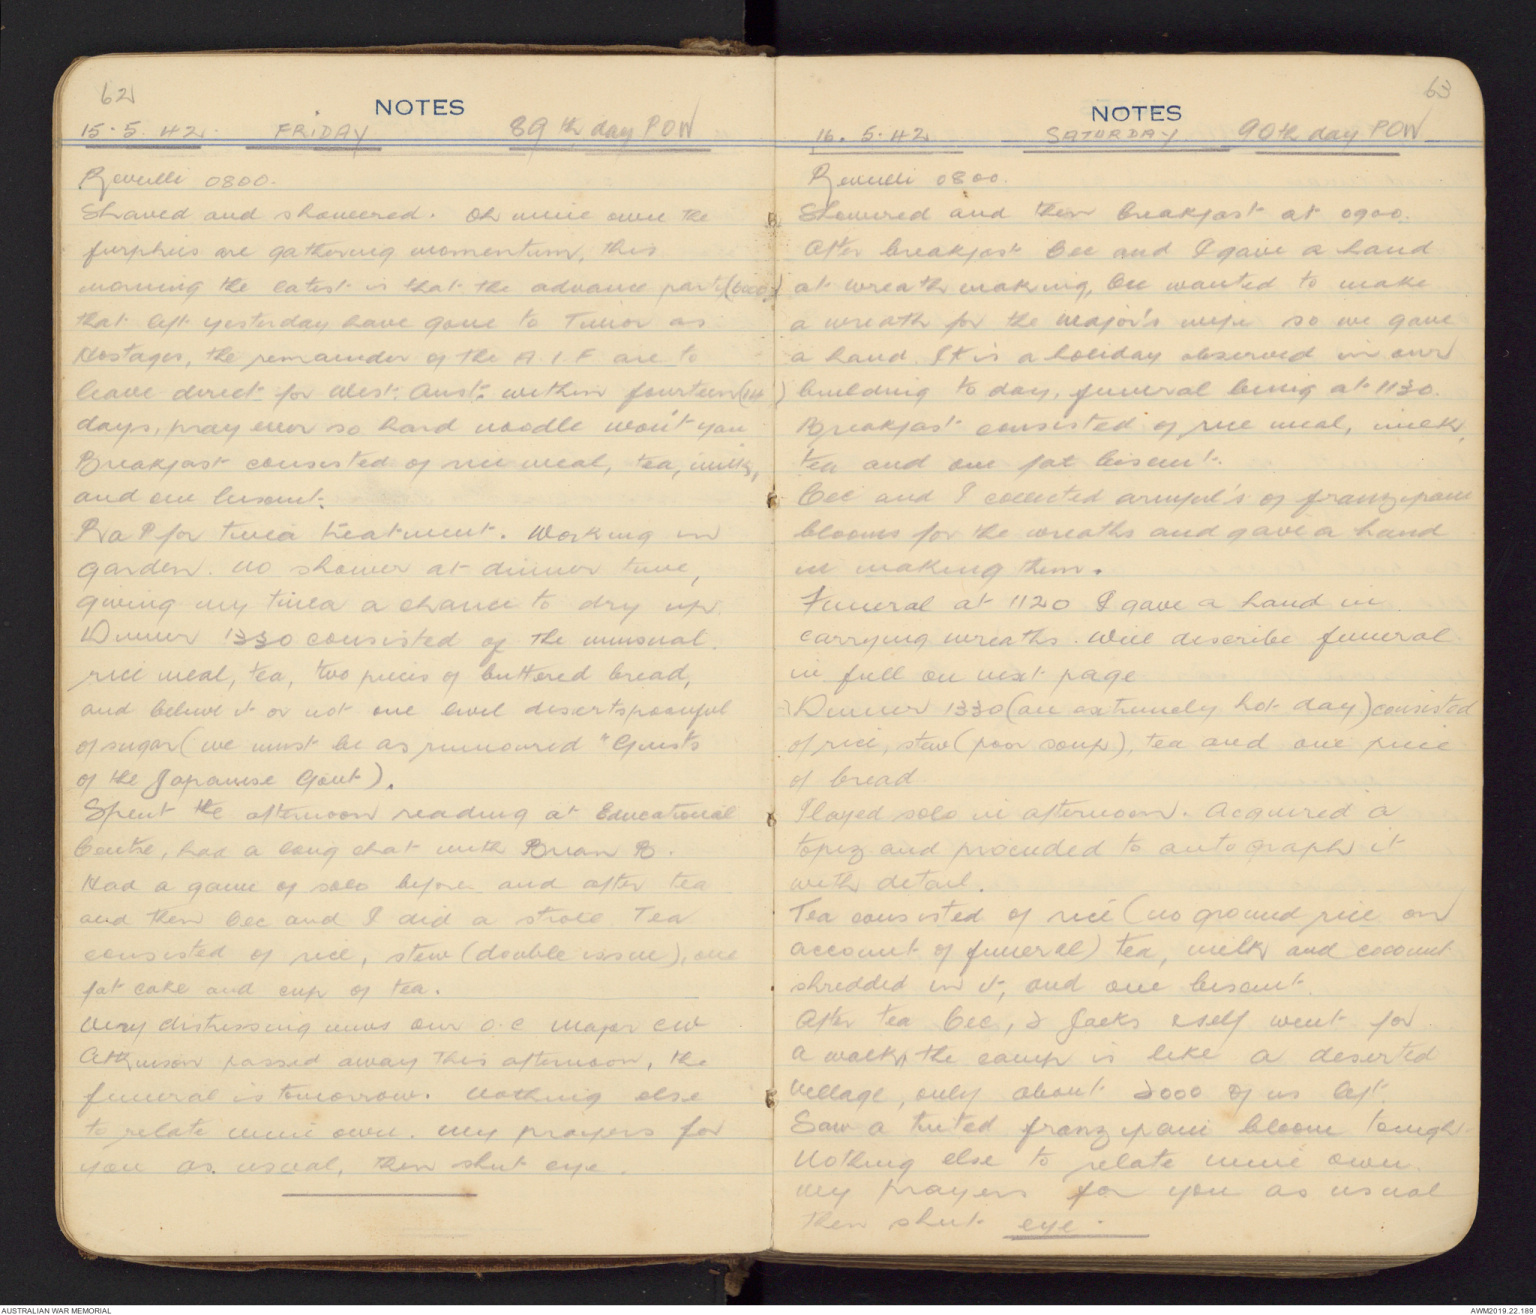 62
NOTES
15.5.42. FRIDAY 89th day POW
Reveilli 0800.
Shaved and showered. Oh mine own the
furphies are gathering momentum, this
morning the latest is that the advance party
that left yesterday have gone to Timor as
Hostages, the remainder of the A.I.F are to
leave direct for West. Aust. within fourteen (14)
days, pray ever so hard noodle won't you
Breakfast consisted of rice meal, tea, milk,
and one biscuit.
RaP for tinea treatment. Working in
garden. No shower at dinner time,
giving my tinea a chance to dry up.
Dinner 1330 consisted of the unusual.
rice meal, tea, two pieces of buttered bread,
and believe it or not one level desertspoonful
of sugar (we must be as rumoured "Guests
of the Japanese Govt).
Spent the afternoon reading at Educational
Centre, had a long chat with Brian B.
Had a game of solo before and after tea
and then Cec and I did a stroll. Tea
consisted of rice, stew (double issue), one
fat cake and cup of tea.
Very distressing news our O.C Major CW
Atkinson passed away this afternoon, the
funeral is tomorrow. Nothing else
to relate mine own. My prayers for
you as usual, then shut eye.
63
NOTES
16.5.42 SATURDAY 90th day POW
Reveilli 0800.
Showered and then breakfast at 0900.
After breakfast Cec and I gave a hand
at wreath making, Cec wanted to make
a wreath for the Major's wife so we gave
a hand. It is a holiday observed in our
building to day, funeral being at 1130.
Breakfast consisted of rice meal, milk,
tea and one fat biscuit.
Cec and I collected armful's of franzipani
blooms for the wreaths and gave a hand
in making them.
Funeral at 1120 I gave a hand in
carrying wreaths. Will describe funeral
in full on next page
Dinner 1330 (an extremely hot day) consisted
of rice, stew (poor soup), tea and one piece
of bread
Played solo in afternoon. Acquired a
topez and proceeded to autograph it
with detail.
Tea consisted of rice (no ground rice on
account of funeral) tea, milk and coconut
shredded in it, and one biscuit.
After tea Cec, J Jacks & self went for
a walk, the camp is like a deserted
village, only about 2000 of us left.
Saw a tinted franzipani bloom tonight.
Nothing else to relate mine own.
My prayers for you as usual
then shut eye.
AUSTRALIAN WAR MEMORIAL
AWM2019.22.189